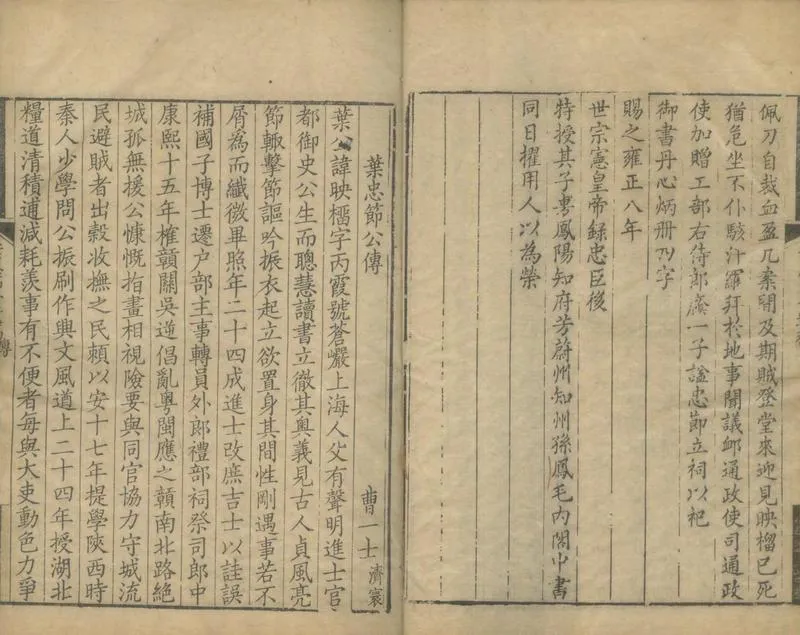 佩刀自裁血盈几案閽及期賊登堂來迎見映榴已死
猶危坐不仆駭汗羅拜於地事聞議䘏通政使司通政
使加贈工部右侍郎廕一子諡忠節立祠以祀
御書丹心炳冊四字
賜之雍正八年
世宗憲皇帝錄忠臣後
特授其子旉鳳陽知府芳蔚州知州孫鳳毛內閣中書
同日擢用人以為榮
葉忠節公傳
曹一士 濟寰
葉公諱映橊字丙霞號蒼巖上海人父有聲明進士官
都御史公生而聰慧讀書立徹其奧義見古人貞風亮
節輙擊節謳吟振衣起立欲置身其間性剛遇事若不
屑為而纖微畢照年二十四成進士改庶吉士以詿誤
補國子博士遷户部主事轉員外郎禮部祠祭司郎中
康熙十五年榷贛關吳逆倡亂粵閩應之贛南北路絕
城孤無援公慷慨指畫相視險要與同官協力守城流
民避賊者出穀收撫之民賴以安十七年提學陝西時
秦人少學問公振刷作興文風道上二十四年授湖北
糧道清積逋減耗羨事有不便者每與大吏動色力爭